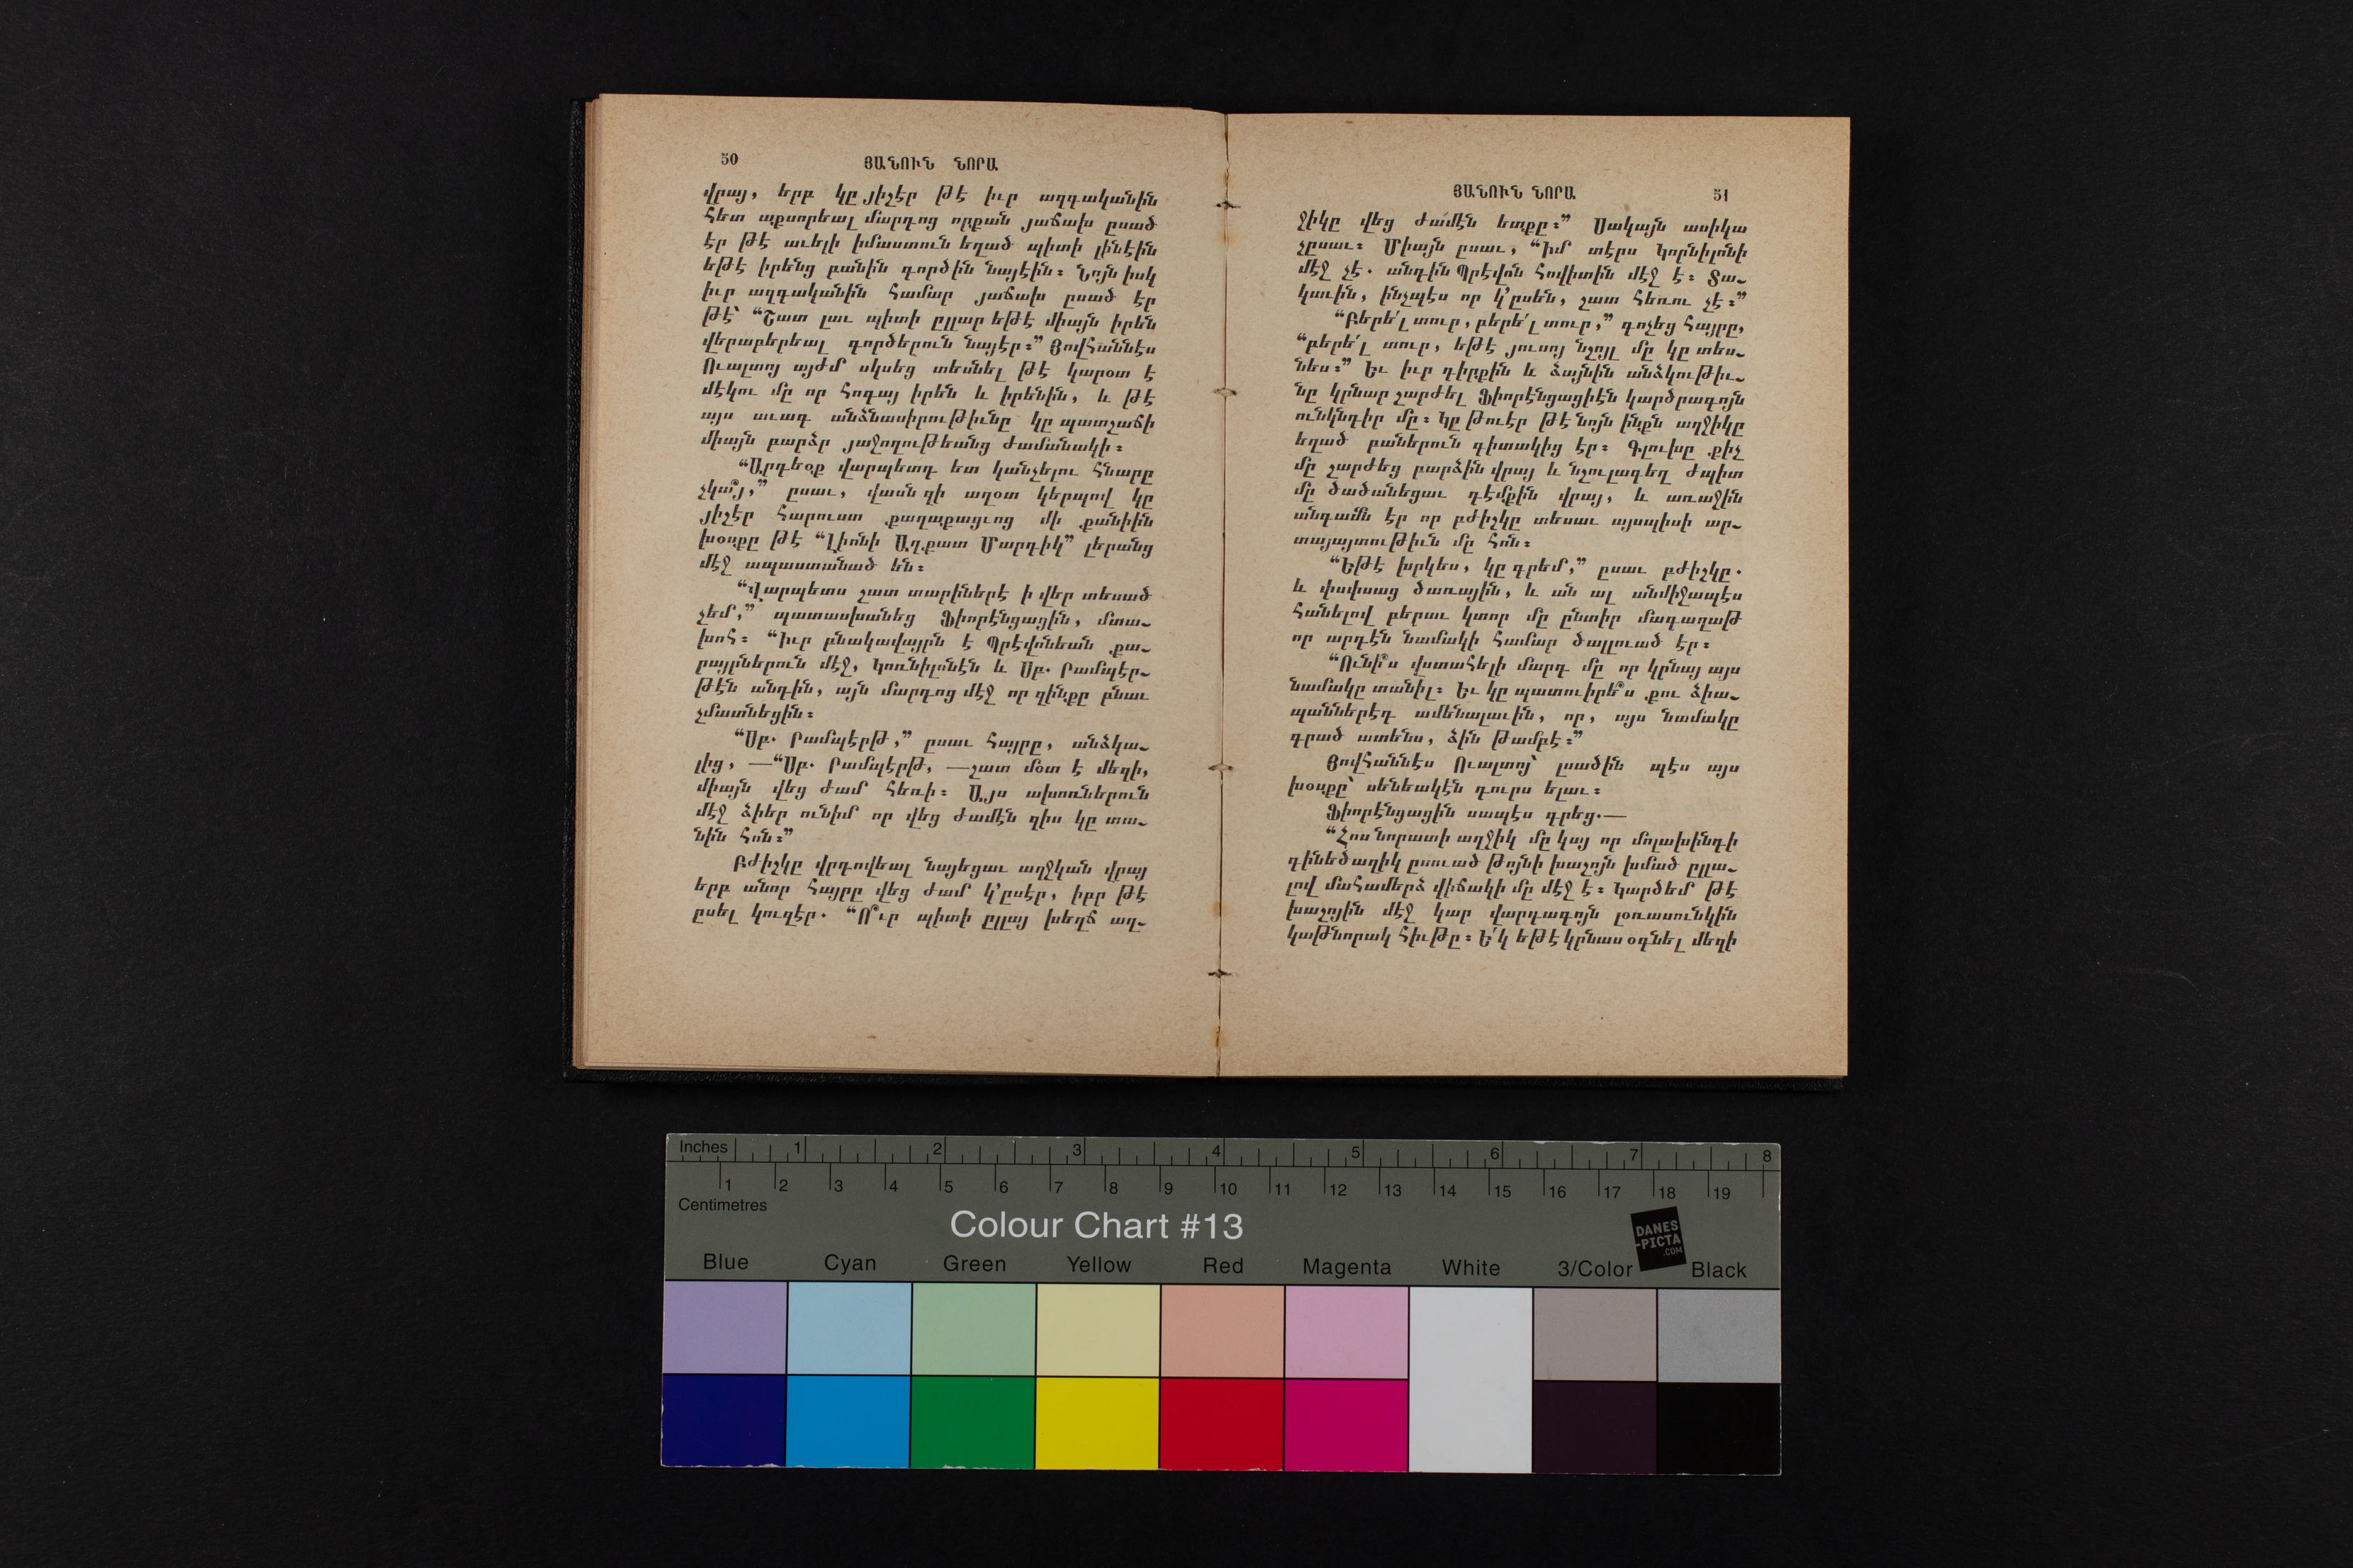 50
ՅԱՆՈՒՆ ՆՈՐԱ
վրայ, երբ կը յիշէր թէ իւր ազգականին
հետ աքսորեալ մարդոց որքան յաճախ ըսած
էր թէ աւելի իմաստուն եղած պիտի լինէին
եթէ իրենց բանին գործին նայէին։ Նոյն իսկ
իւր ազգականին համար յաճախ ըսած էր
թէ՝ “Շատ լաւ պիտի ըլլար եթէ միայն իրեն
վերաբերեալ գործերուն նայէր։” Յովհաննէս
Ուալտոյ այժմ սկսեց տեսնել թէ կարօտ է
մէկու մը որ հոգայ իրեն և իրենին, և թէ
այս աւագ անձնասիրութիւնը կը պատշաճի
միայն բարձր յաջողութեանց ժամանակի։
“Արդեօք վարպետդ ետ կանչելու հնարը
չկա՞յ,” ըսաւ, վասն զի աղօտ կերպով կը
յիշէր հարուստ քաղաքացւոց մի քանիին
խօսքը թէ “Լիոնի Աղքատ Մարդիկ” լերանց
մէջ ապաստանած են։
“Վարպետս շատ տարիներէ ի վեր տեսած
չեմ,” պատասխանեց Ֆիորէնցացին, մտա-
խոհ։ “Իւր բնակավայրն է Պրէվոնեան քա-
րայրներուն մէջ, Կոռնիլոնէն և Սբ. Րամպէր-
թէն անդին, այն մարդոց մէջ որ զինքը բնաւ
չմատնեցին։
“Սբ. Րամպէրթ,” ըսաւ հայրը, անձկա-
լից, —“Սբ. Րամպէրթ, —շատ մօտ է մեզի,
միայն վեց ժամ հեռի։ Այս ախոռներուն
մէջ ձիեր ունիմ որ վեց ժամէն զիս կը տա-
նին հոն։”
Բժիշկը վրդովեալ նայեցաւ աղջկան վրայ
երբ անոր հայրը վեց ժամ կ’ըսէր, իբր թէ
ըսել կուզէր. “Ո՞ւր պիտի ըլլայ խեղճ աղ-
ՅԱՆՈՒՆ ՆՈՐԱ
51
ջիկը վեց ժամէն ետքը։” Սակայն ասիկա
չըսաւ։ Միայն ըսաւ, “Իմ տէրս Կորնիլոնի
մէջ չէ. անդին Պրէվոն հովիտին մէջ է։ Տա-
կաւին, ինչպէս որ կ’ըսեն, շատ հեռու չէ։”
“Բերե՛լ տուր, բերե՛լ տուր,” գոչեց հայրը,
“բերե՛լ տուր, եթէ յուսոյ նշոյլ մը կը տես-
նես։” Եւ իւր դիրքին և ձայնին անձկութիւ-
նը կրնար շարժել Ֆիորէնցացիէն կարծրագոյն
ունկնդիր մը։ Կը թուէր թէ նոյն ինքն աղջիկը
եղած բաներուն գիտակից էր։ Գլուխը քիչ
մը շարժեց բարձին վրայ և նշուլագեղ ժպիտ
մը ծածանեցաւ դէմքին վրայ, և առաջին
անգամն էր որ բժիշկը տեսաւ այսպիսի ար-
տայայտութիւն մը հոն։
“Եթէ խրկես, կը գրեմ,” ըսաւ բժիշկը.
և փսփսաց ծառային, և ան ալ անմիջապէս
հանելով բերաւ կտոր մը ընտիր մագաղաթ
որ արդէն նամակի համար ծալլուած էր։
“Ունի՞ս վստահելի մարդ մը որ կրնայ այս
նամակը տանիլ։ Եւ կը պատուիրե՞ս քու ձիա-
պաններէդ ամենալաւին, որ, այս նամակը
գրած ատենս, ձին թամբէ։”
Յովհաննէս Ուալտոյ՝ լսածին պէս այս
խօսքը՝ սենեակէն դուրս ելաւ։
Ֆիորէնցացին սապէս գրեց.—
“Հոս նորատի աղջիկ մը կայ որ մոլախինդի
գինեծաղիկ ըսուած թոյնի խաշոյն խմած ըլլա-
լով մահամերձ վիճակի մը մէջ է։ Կարծեմ թէ
խաշոյին մէջ կար վարդագոյն լօռասունկին
կաթնորակ հիւթը։ Ե՛կ եթէ կրնաս օգնել մեզի
Inches 1 2 3 4 5 6 7 8
1 2 3 4 5 6 7 8 9 10 11 12 13 14 15 16 17 18 19
Centimetres
Colour Chart #13
DANES
-PICTA
.COM
Blue Cyan Green Yellow Red Magenta White 3/Color Black